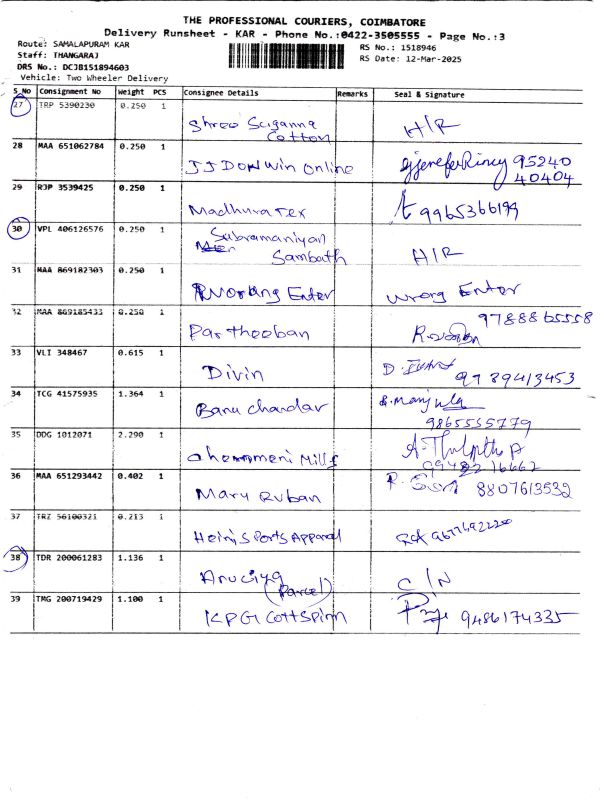 THE PROFESSIONAL COURIERS, COIMBATORE
Delivery Runsheet - KAR - Phone No.:0422-3505555 - Page No.:3
Route: SAMALAPURAM KAR
RS No.: 1518946
Staff: THANGARAJ
RS Date: 12-Mar-2025
DRS No.: DCJB151894603
Vehicle: Two Wheeler Delivery
S_No Consignment No Weight PCS Consignee Details Remarks Seal & Signature
27 TRP 5390230 0.250 1
Shree
Cotton H/R
28 MAA 651062784 0.250 1
JJ DON Win Online 95240
40404
29 RJP 3539425 0.250 1
Madhura Tex 9965366199
30 VPL 406126576 0.250 1
Subramaniyan
Sambath H/R
31 MAA 869182303 0.250 1
Enter Wrong Enter
32 MAA 869185433 0.250 1
Partheeban 9788865558
33 VLI 348467 0.615 1
Divin D. 9789413453
34 TCG 41575935 1.364 1
Banu chandar S. Manjula
9865555779
35 DDG 1012071 2.290 1
Mills
36 MAA 651293442 0.402 1
Mary Ruban 8807613532
37 TRZ 56100321 0.213 1
Sports Apparel
38 TDR 200061283 1.136 1
Anuciya
(Parcel) C/N
39 TMG 200719429 1.100 1
KPG Cottspinn 9486174335